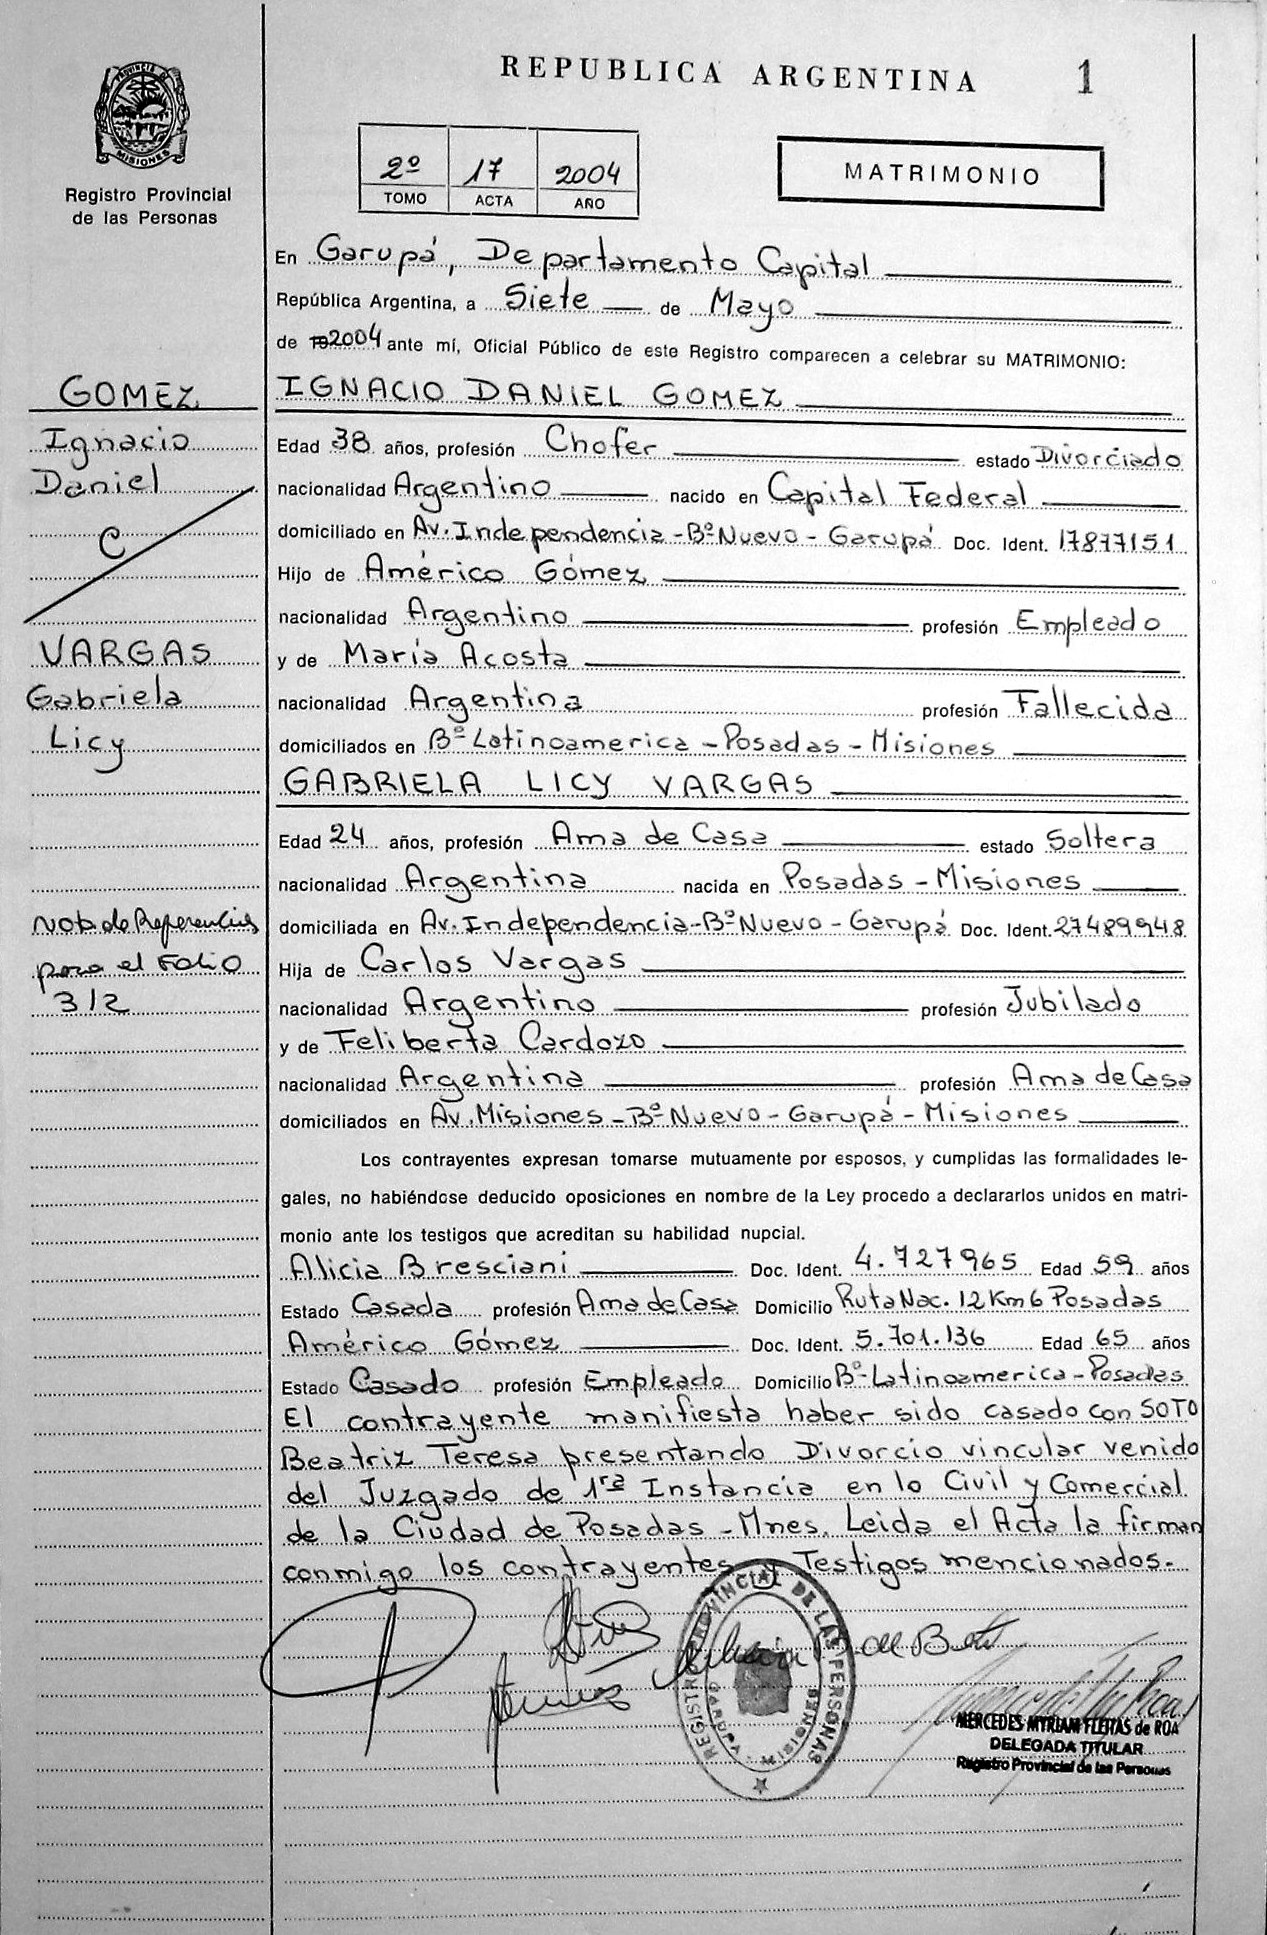 REPUBLICA ARGENTINA 1
PROVINCIA DE
MISIONES
Registro Provincial
de las Personas
2º 17 2004
TOMO ACTA AÑO
MATRIMONIO
En Garupá, Departamento Capital
República Argentina, a Siete de Mayo
de 2004 ante mí, Oficial Público de este Registro comparecen a celebrar su MATRIMONIO:
GOMEZ
Ignacio
Daniel
C
VARGAS
Gabriela
Licy
Nota de Referencias
para el Folio
312
IGNACIO DANIEL GOMEZ
Edad 38 años, profesión Chofer estado Divorciado
nacionalidad Argentino nacido en Capital Federal
domiciliado en Av. Independencia - Bº Nuevo - Garupá Doc. Ident. 17877151
Hijo de Américo Gómez
nacionalidad Argentino profesión Empleado
y de María Acosta
nacionalidad Argentina profesión Fallecida
domiciliados en Bº Latinoamerica - Posadas - Misiones
GABRIELA LICY VARGAS
Edad 24 años, profesión Ama de Casa estado Soltera
nacionalidad Argentina nacida en Posadas - Misiones
domiciliada en Av. Independencia - Bº Nuevo - Garupá Doc. Ident. 27489948
Hija de Carlos Vargas
nacionalidad Argentino profesión Jubilado
y de Feliberta Cardozo
nacionalidad Argentina profesión Ama de Casa
domiciliados en Av. Misiones - Bº Nuevo - Garupá - Misiones
Los contrayentes expresan tomarse mutuamente por esposos, y cumplidas las formalidades le-
gales, no habiéndose deducido oposiciones en nombre de la Ley procedo a declararlos unidos en matri-
monio ante los testigos que acreditan su habilidad nupcial.
Alicia Bresciani Doc. Ident. 4.727965 Edad 59 años
Estado Casada profesión Ama de Casa Domicilio Ruta Nac. 12 Km 6 Posadas
Américo Gómez Doc. Ident. 5.701.136 Edad 65 años
Estado Casado profesión Empleado Domicilio Bº Latinoamerica - Posadas
El contrayente manifiesta haber sido casado con SOTO
Beatriz Teresa presentando Divorcio vincular venido
del Juzgado de 1ra Instancia en lo Civil y Comercial
de la Ciudad de Posadas - Mnes. Leida el Acta la firman
conmigo los contrayentes y Testigos mencionados.-
REGISTRO PROVINCIAL DE LAS PERSONAS
GARUPA - MISIONES
MERCEDES MYRIAM FLEITAS de ROA
DELEGADA TITULAR
Registro Provincial de las Personas